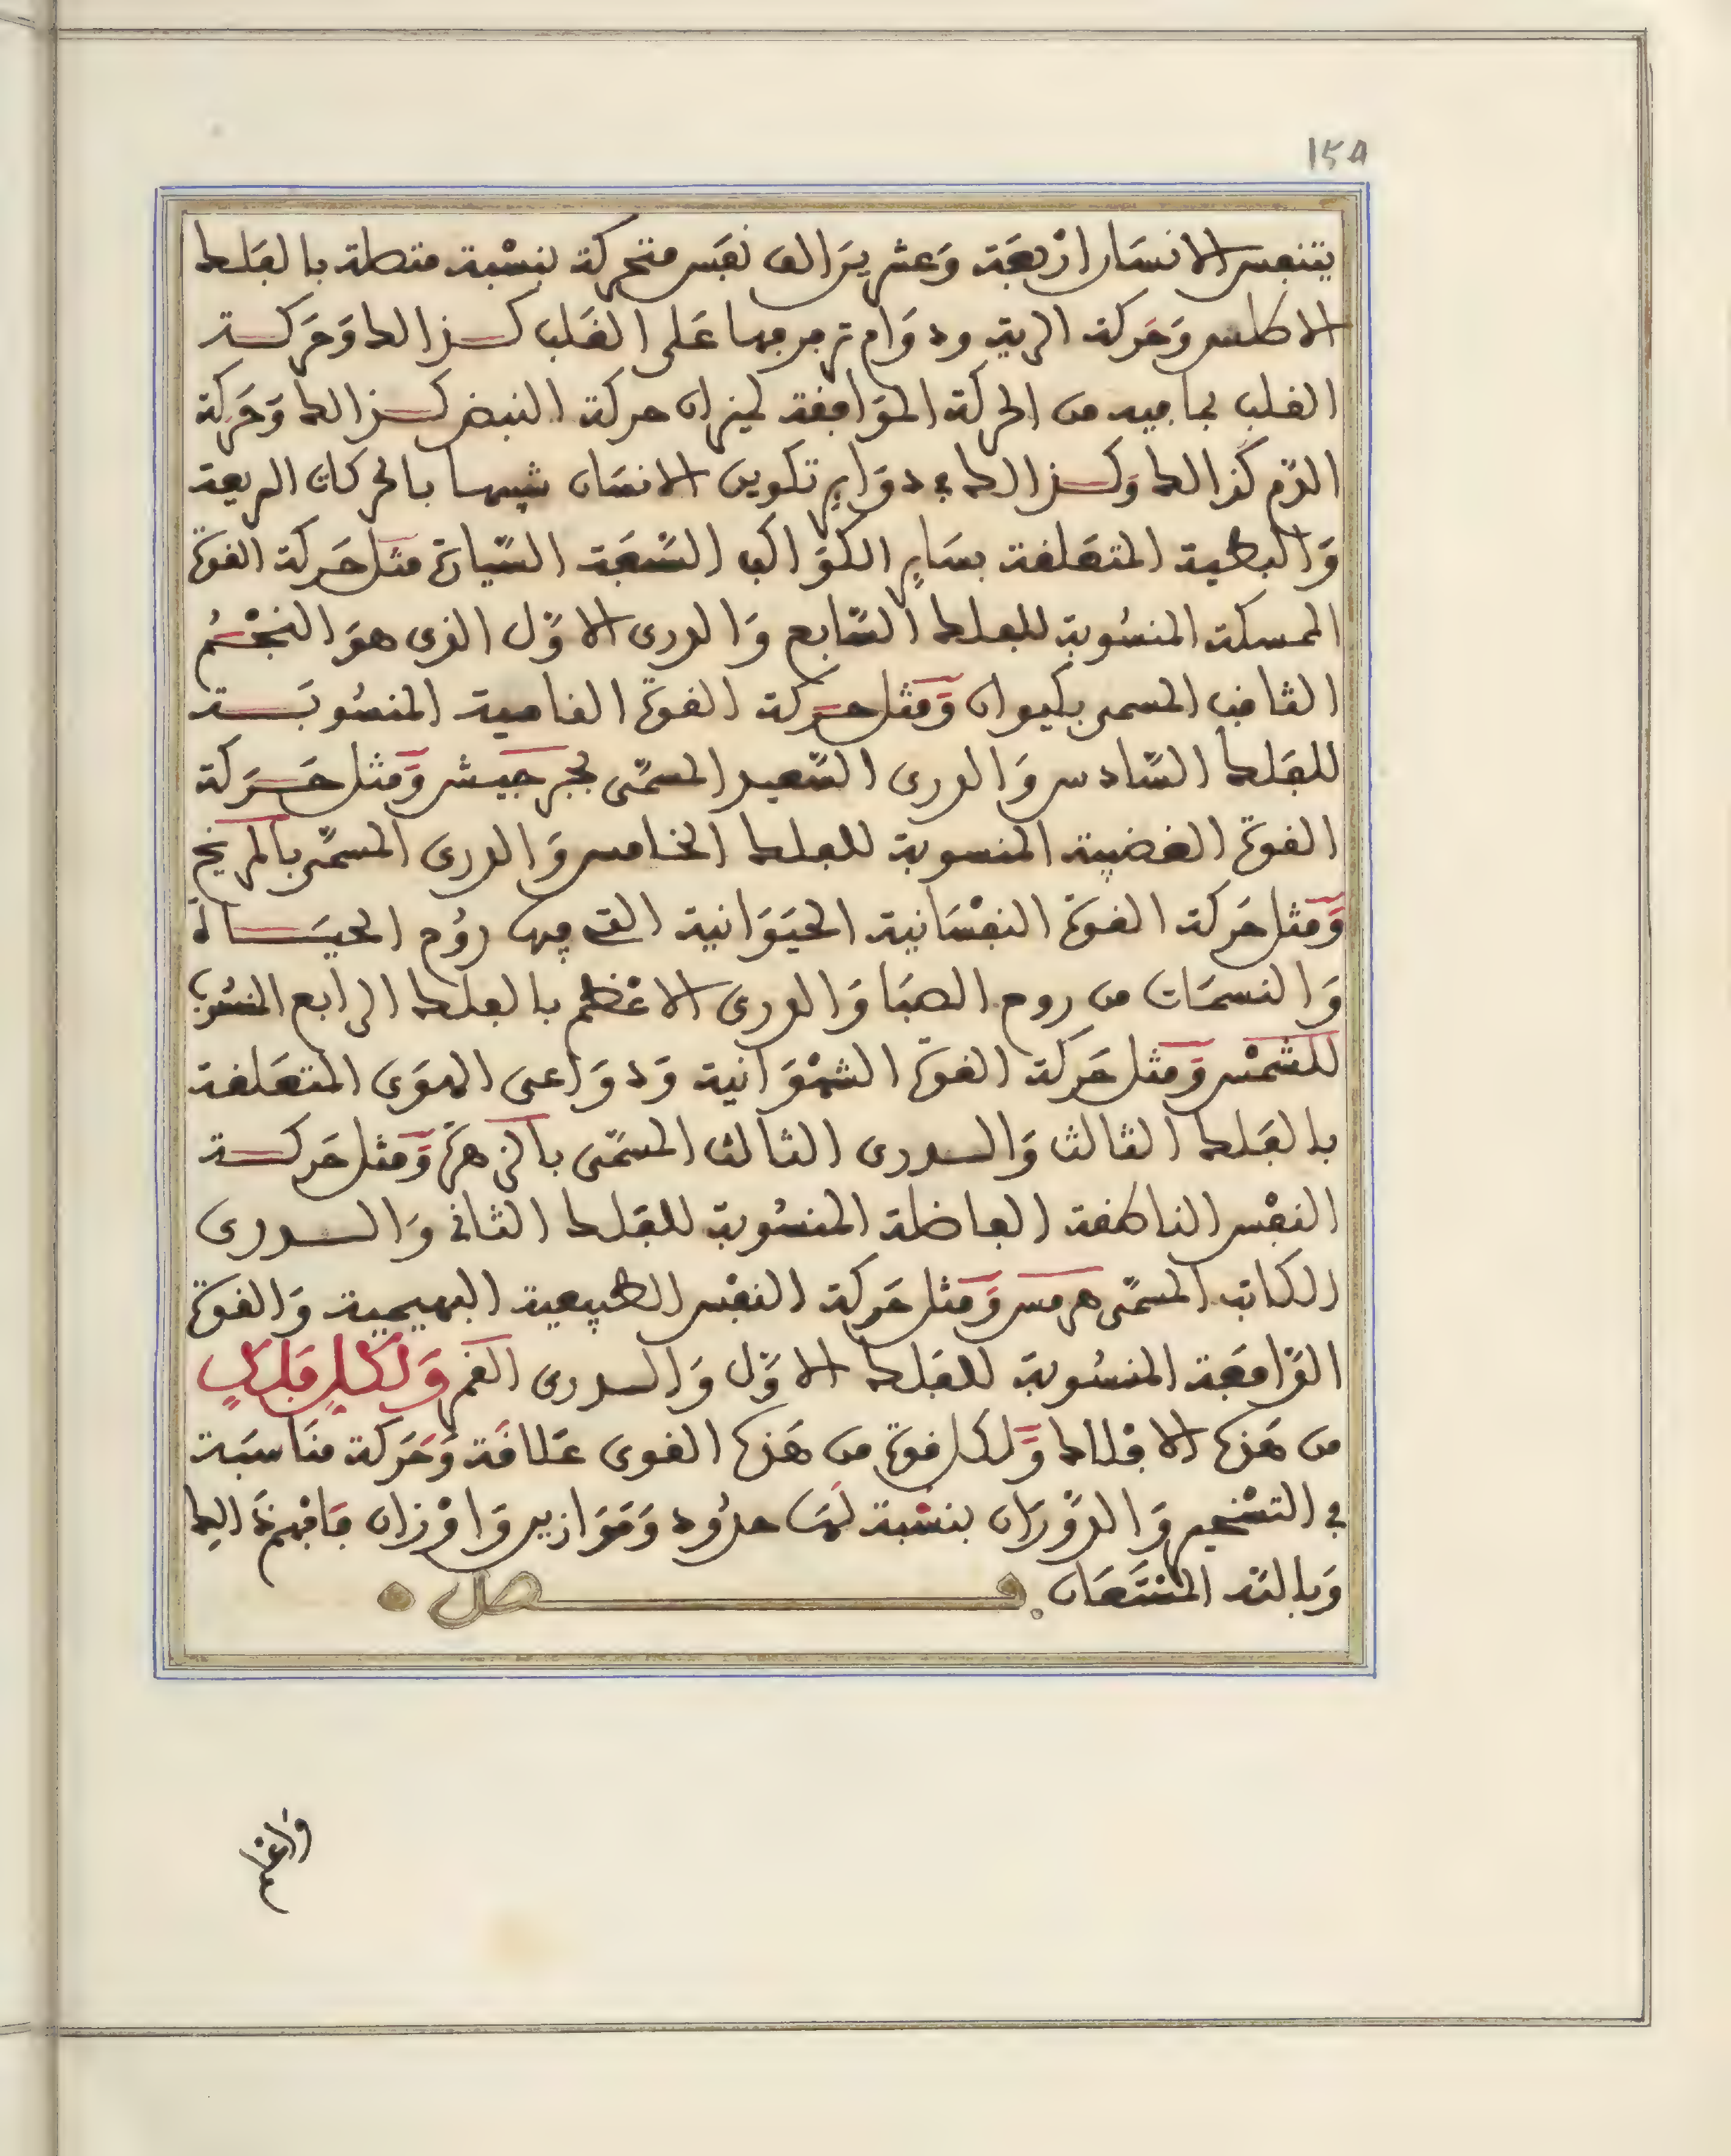 158
يتنفس الانسان اربعة وعشرين الف نفس متحركة بنسبة متصلة بالفلك
الاطلس وحركة الرية ودوام ترمرمها على القلب كذالك وحركة
القلب بما فيه من الحركة الموافقة لميزان حركة النبض كذالك وحركة
الدم كذالك وكذالك في دواير تكوين الانسان شبيها بالحركات السريعة
والبطية المتعلقة بساير الكواكب السبعة السيارة مثل حركة القوة
الممسكة المنسوبة للفلك السابع والدرى الاول الذى هو النجم
الثاقب المسمى بكيوان ومثل حركة القوة النامية المنسوبة
للفلك السادس والدرى السعيد المسمى بجرجيش ومثل حركة
القوة الغضبية المنسوبة للفلك الخامس والدرى المسمى بالمريخ
ومثل حركة القوة النفسانية الحيوانية التى فيها روح الحياة
والنسمات من روح الصبا والدرى الاعظم بالفلك الرابع المنسوب
للشمس ومثل حركة القوة الشهوانية ودواعى الهوى المتعلقة
بالفلك الثالث والدرى الثالث المسمى بالزهرة ومثل حركة
النفس الناطقة الفاضلة المنسوبة للفلك الثانى والدرى
الكاتب المسمى هرمس ومثل حركة النفس الطبيعية البهيمية والقوة
الدافعة المنسوبة للفلك الاول والدرى القمر ولكل فلك
من هذه الافلاك ولكل قوة من هذه القوى علاقة وحركة مناسبة
فى التسخير والدوران بنسبة لها حدود وموازين واوزان فافهم ذالك
وبالله المستعان فصل
واعلم